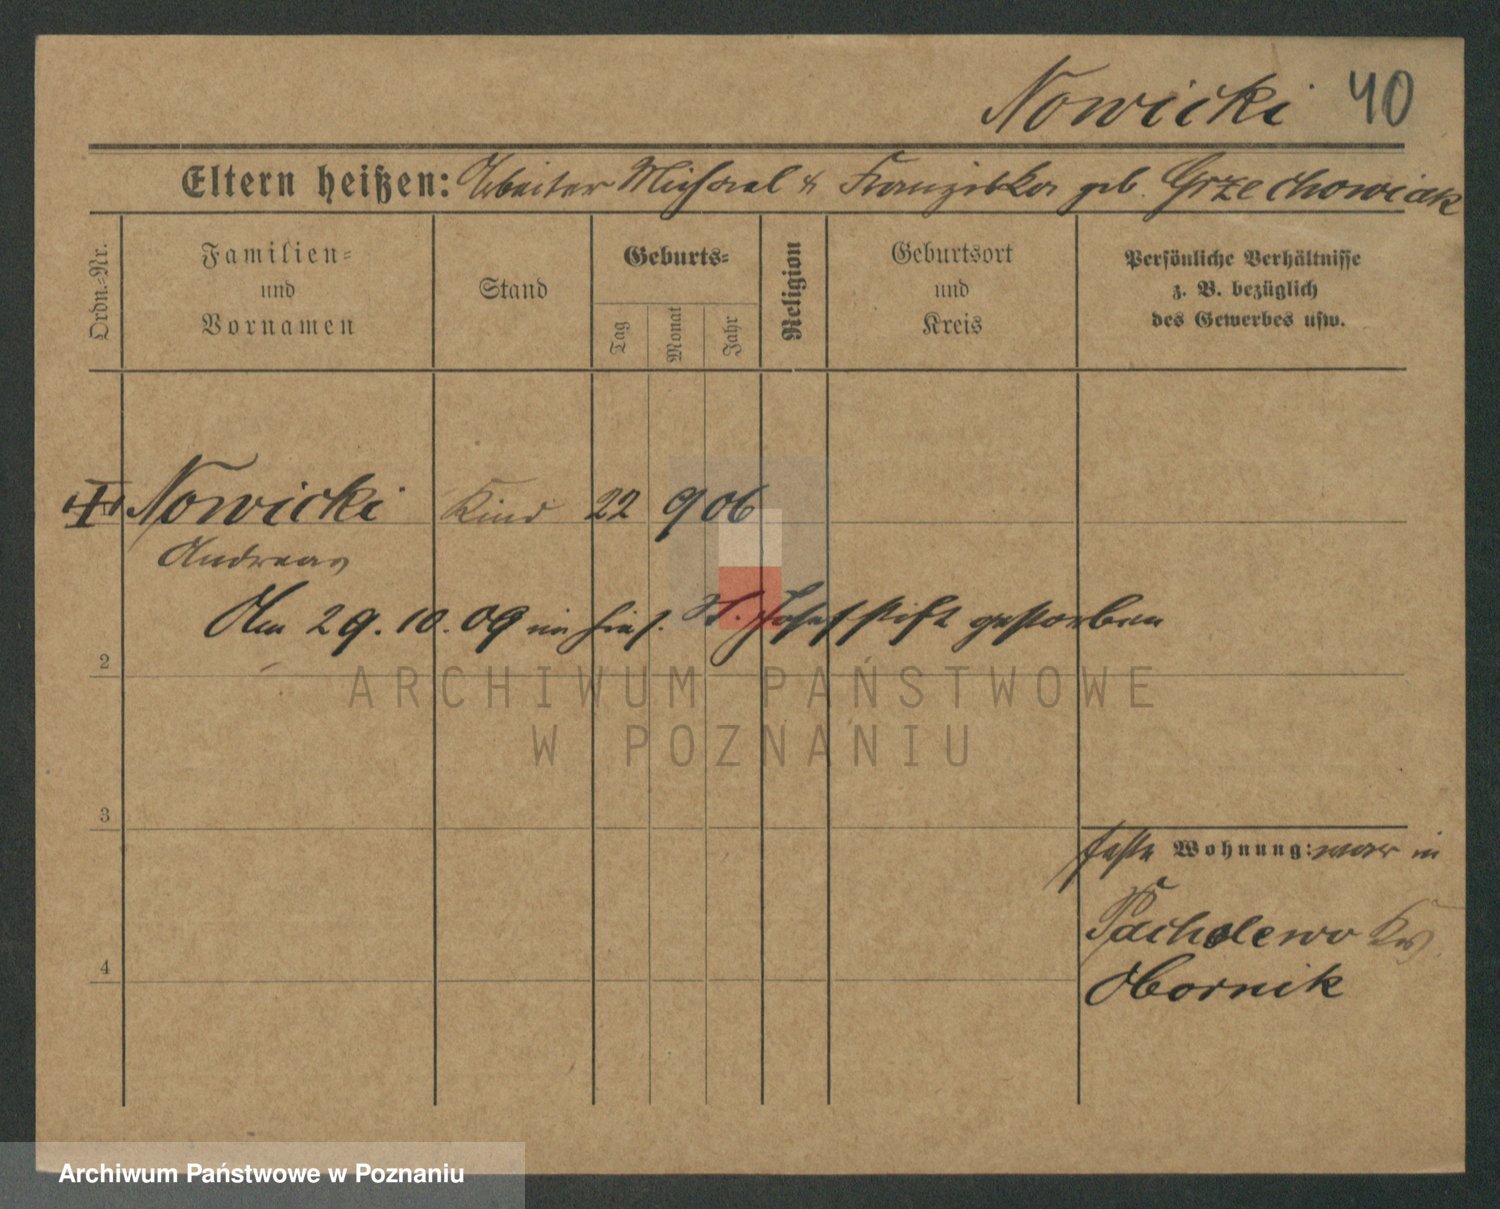 Nowicki 40
Eltern heißen: Arbeiter Michael & Franziska geb. Grzechowiak
Ordn.-Nr.
Familien-
und
Vornamen
Stand
Geburts-
Tag
Monat
Jahr
Religion
Geburtsort
und
Kreis
Persönliche Verhältnisse
z. B. bezüglich
des Gewerbes usw.
Nowicki Kind 22 9 06
Andreas
Am 29.10.09 im hies. St. Josefstift gestorben
2
ARCHIWUM PAŃSTWOWE
W POZNANIU
3
feste Wohnung: war in
Pacholewo Krs.
Obornik
4
Archiwum Państwowe w Poznaniu